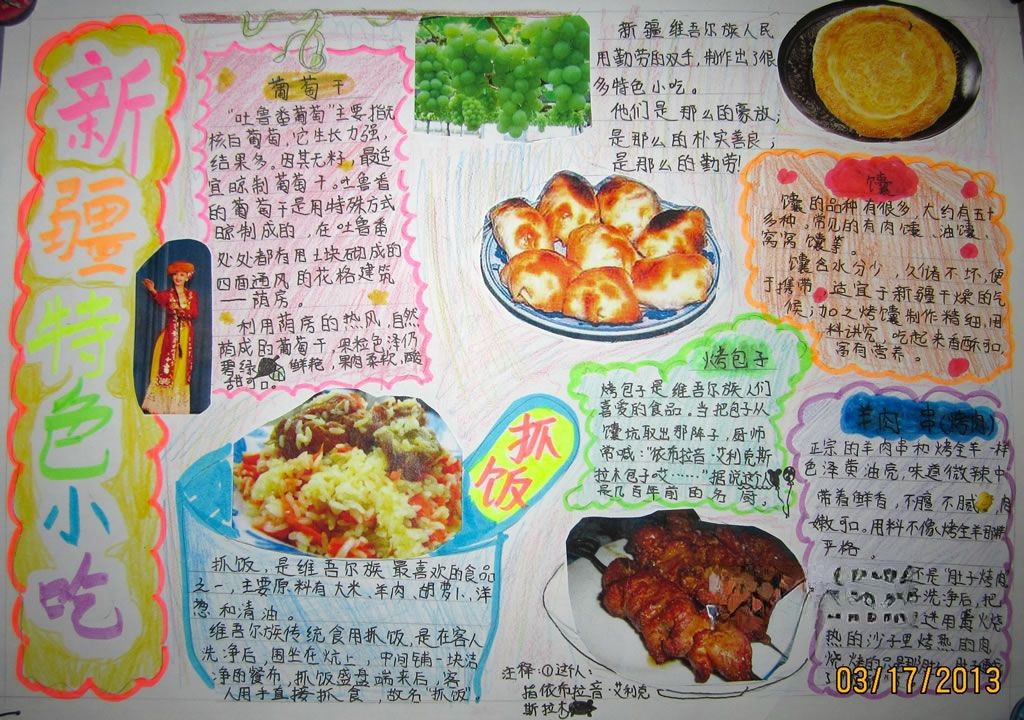 新
疆
特
色
小
吃
葡萄干
"吐鲁番葡萄"主要指无
核白葡萄,它生长力强,
结果多。因其无籽,最适
宜晾制葡萄干。吐鲁番
的葡萄干是用特殊方式
晾制成的,在吐鲁番
处处都有用土块砌成的
四面通风的花格建筑
——荫房。
利用荫房的热风,自然
荫成的葡萄干,果粒色泽仍
碧绿 鲜艳,果肉柔软,酸
甜可口。
新疆维吾尔族人民
用勤劳的双手,制作出了很
多特色小吃。
他们是那么的豪放;
是那么的朴实善良;
是那么的勤劳!
馕
馕的品种有很多 大约有五十
多种,常见的有肉馕、油馕、
窝窝馕等。
馕含水分少,久储不坏,便
于携带,适宜于新疆干燥的气
候;加之烤馕制作精细,用
料讲究,吃起来香酥可口,
富有营养。
烤包子
烤包子是维吾尔族人们
喜爱的食品。当把包子从
馕坑取出那阵子,厨师
常喊:"依布拉音·艾利克斯
拉木包子哎……"据说这人
是几百年前的名厨。
羊肉串(烤肉)
正宗的羊肉串和烤全羊一样
色泽黄油亮,味道微辣中
带着鲜香,不腻不腻,肉
嫩可口。用料不像烤全羊那精
严格。
还是"肚子烤肉
洗净后,把
进用薰火
热的沙子里烤熟的肉
抓
饭
抓饭,是维吾尔族最喜欢的食品
之一,主要原料有大米、羊肉、胡萝卜、洋
葱和清油。
维吾尔族传统食用抓饭,是在客人
洗净后,围坐在炕上,中间铺一块洁
净的餐布,抓饭盛盘端来后,客
人用手直接抓食,故名"抓饭"。
注释:①这人:
指依布拉音·艾利克
斯拉木
03/17/2013